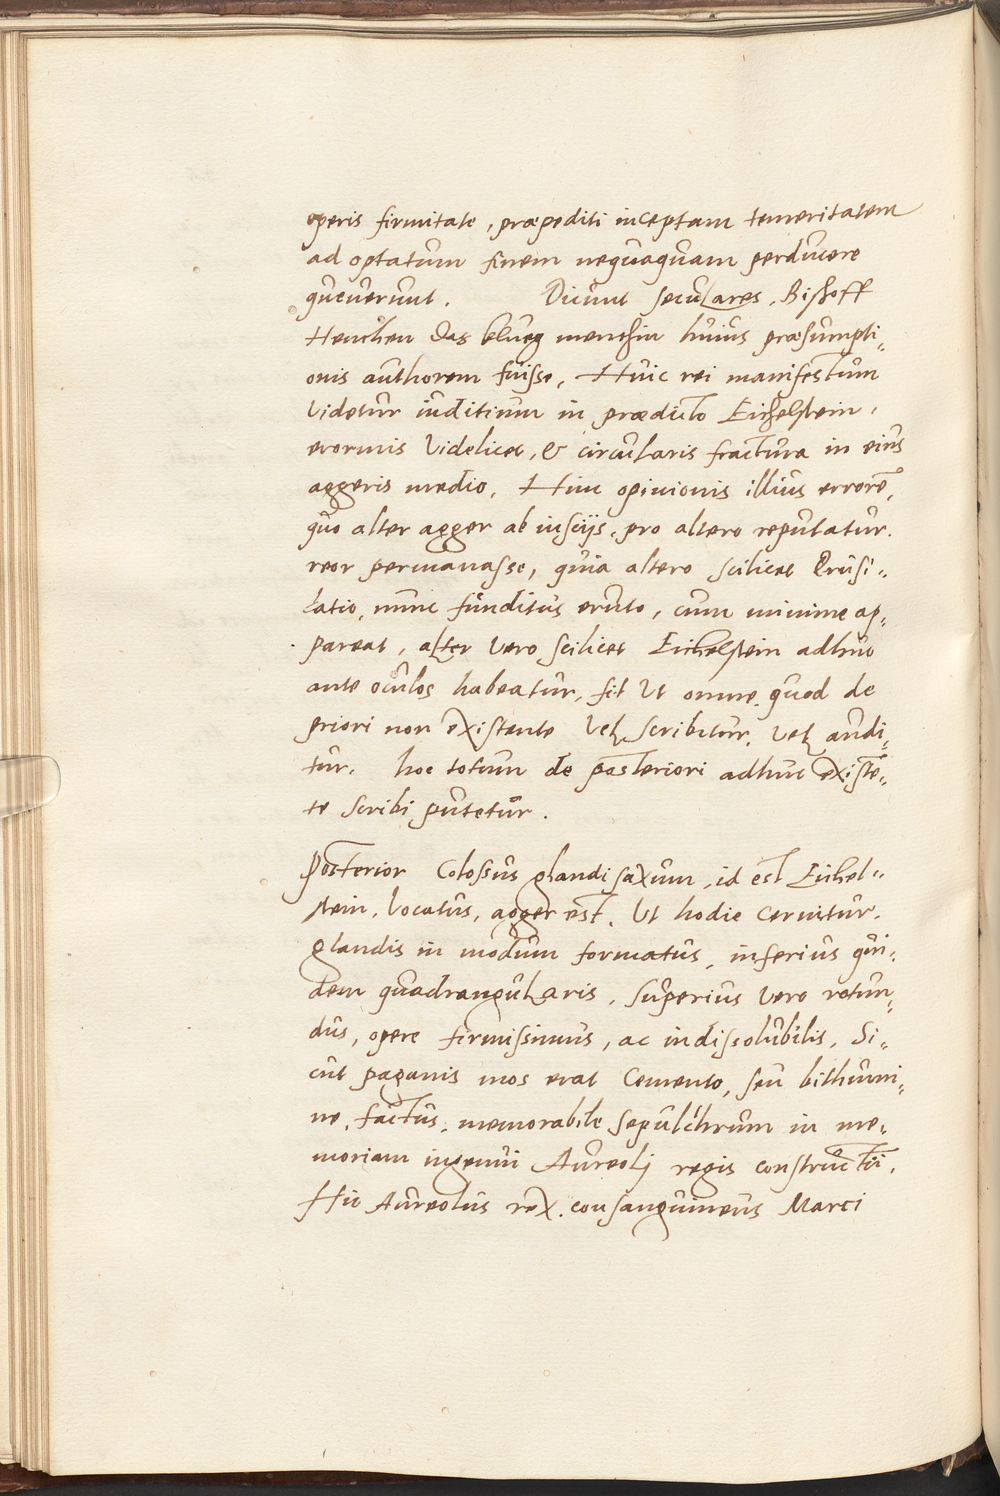 operis firmitate, præpediti inceptam temeritatem
ad optatum finem nequaquam perducere
queuerunt. Dicunt seculares, Bischoff
Henchen das klueg menchin huius præsumpti„
onis authorem fuisse, Huic rei manifestum
videtur inditium in prædicto Eichelstein,
enormis videlicet, & circularis fractura in eius
aggeris medio, Hinc opinionis illius errorē,
quo alter agger ab inscijs, pro altero reputatur.
reor permanasse, quia altero scilicet Drusi„
latio, nunc funditus eruto, cum minime ap„
pareat, alter vero scilicet Eichelstein adhuc
ante oculos habeatur, fit ut omne, quod de
priori non existente vel scribitur, vel audi„
tur. hoc totum de posteriori adhuc existē„
te scribi putetur.
Posterior Colossus glandi saxum, id est Eichel„
stein, vocatus, agger est, Ut hodie cernitur,
glandis in modum formatus, inferius qui„
dem quadrangularis, superius vero rotun„
dus, opere firmissimus, ac indissolubilis, Si„
cut paganis mos erat Cemento, seu bithumi„
ne, factus, memorabile sepulchrum in me„
moriam ingenui Aureolj regis constructū,
Hic Aureolus rex, consanguineus Marci